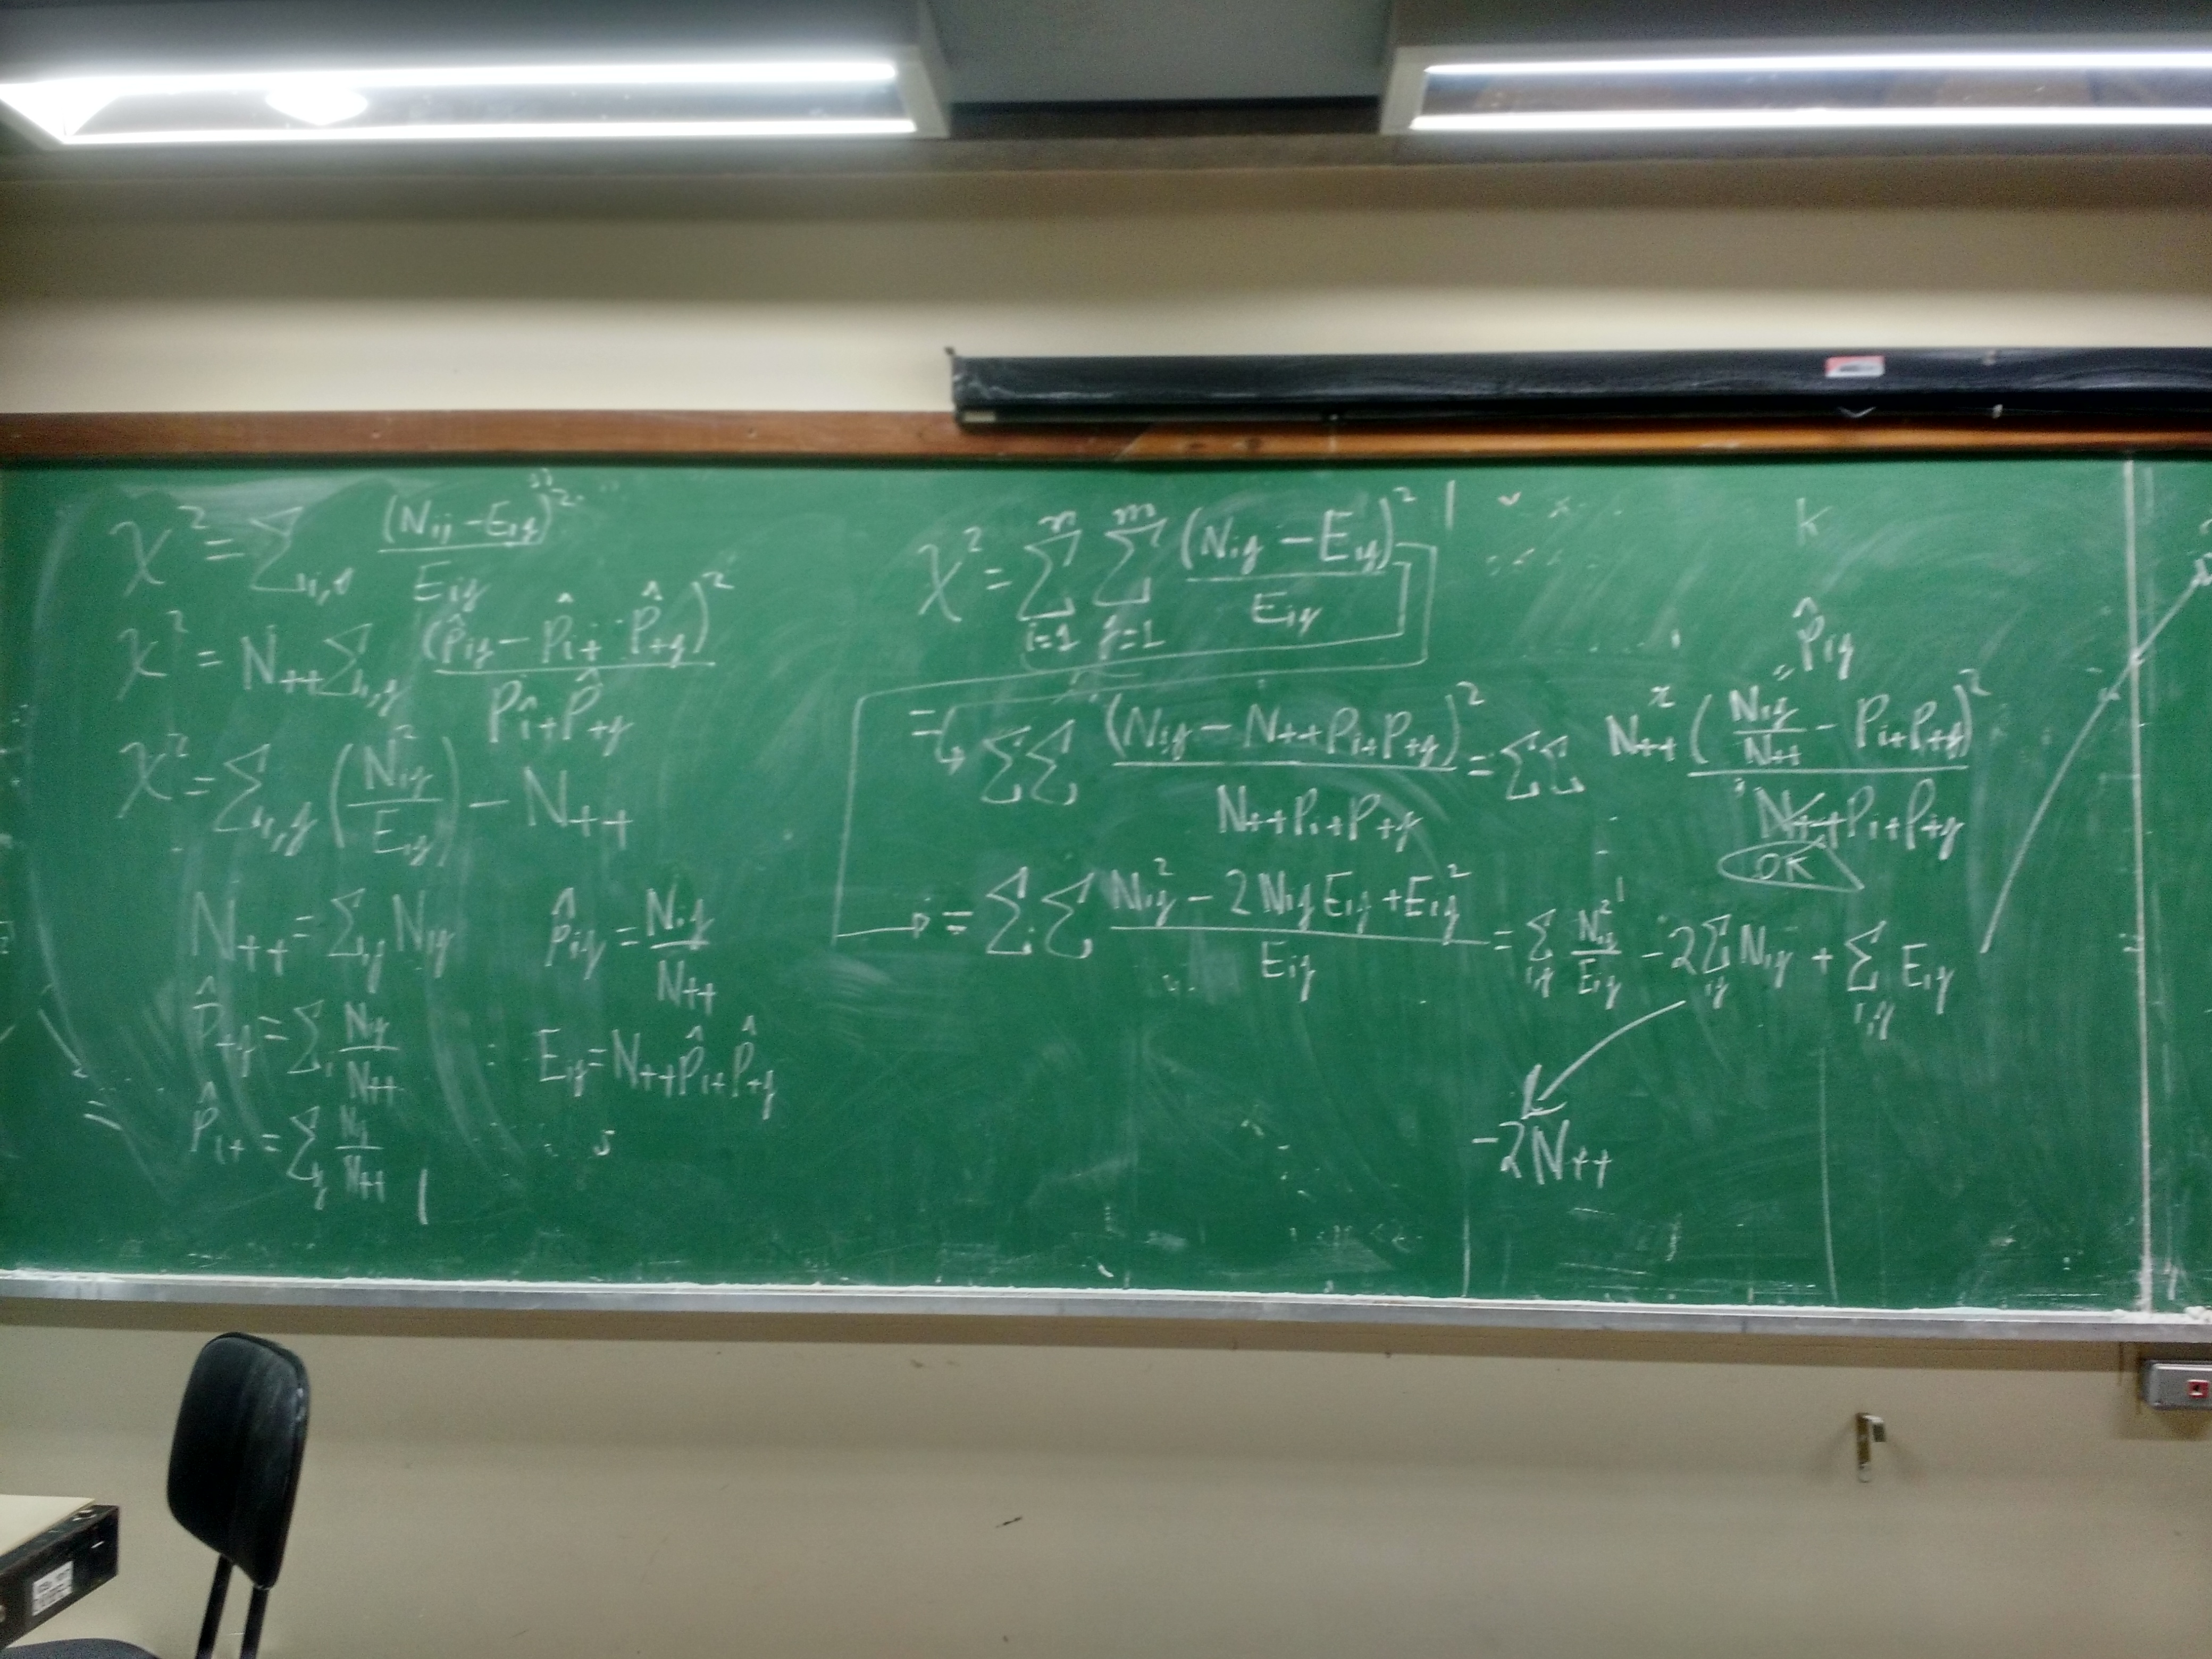 χ² = Σ_{i,j} (N_{ij} - E_{ij})² / E_{ij}
χ² = N_{++} Σ_{i,j} (p̂_{ij} - p̂_{i+} p̂_{+j})² / p̂_{i+} p̂_{+j}
χ² = Σ_{i,j} (N_{ij}² / E_{ij}) - N_{++}
N_{++} = Σ_{ij} N_{ij}    p̂_{ij} = N_{ij} / N_{++}
p̂_{+j} = Σ_i N_{ij} / N_{++}    E_{ij} = N_{++} p̂_{i+} p̂_{+j}
p̂_{i+} = Σ_j N_{ij} / N_{++}
χ² = Σ_{i=1}^{n} Σ_{j=1}^{m} (N_{ij} - E_{ij})² / E_{ij}
K
= p̂_{ij}
= ΣΣ (N_{ij} - N_{++} P_{i+} P_{+j})² / N_{++} P_{i+} P_{+j} = ΣΣ N_{++}² (N_{ij} / N_{++} - P_{i+} P_{+j})² / N_{++} P_{i+} P_{+j}
OK
= Σ_i Σ (N_{ij}² - 2 N_{ij} E_{ij} + E_{ij}²) / E_{ij} = Σ_{ij} N_{ij}² / E_{ij} - 2 Σ_{ij} N_{ij} + Σ_{i,j} E_{ij}
-2N_{++}